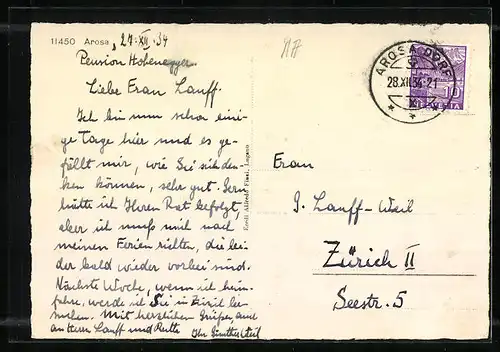 11450 Arosa, 27.XII.34
Pension Hohenegger
Liebe Frau Lauff.
Ich bin nun schon eini-
ge Tage hier und es ge-
fällt mir, wie Sie sich den-
ken können, sehr gut. Gern
hätte ich Ihren Rat befolgt,
aber ich muß mich nach
meinen Ferien richten, die lei-
der bald wieder vorbei sind.
Nächste Woche, wenn ich heim-
fahre, werde ich Sie in Zürich be-
suchen. Mit herzlichen Grüßen, auch
an Herrn Lauff und Ruthi
Ihr
AROSA DORF
28.XII.34-21
10
HELVETIA
Frau
J. Lauff-Weil
Zürich II
Seestr. 5